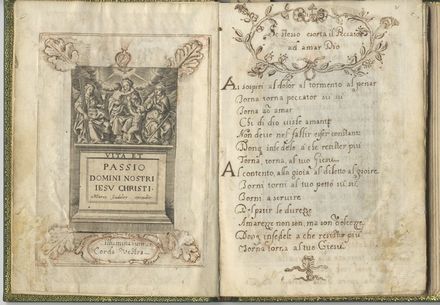 VITA ET
PASSIO
DOMINI NOSTRI
IESV CHRISTI.
Marco Sadeler excudit
Illuminationem
Cordis Vestra
Se stesso esorta il Peccator
ad amar Dio
Ai sospiri al dolor al tormento al penar
Torna torna peccator
Torna ad amar
Chi di dio viue amante
Non deue nel fallir esser constante
Donq infedele a che resister piu
Torna, torna, al tuo Giesu
Al contento, alla gioia, al diletto al gioire
Torni torni al tuo petto
Torni a seruire
De patir le durezze
Amarezze non son, ma son dolcezze
Donq infedele a che resister piu
Torna torna al tuo Giesu